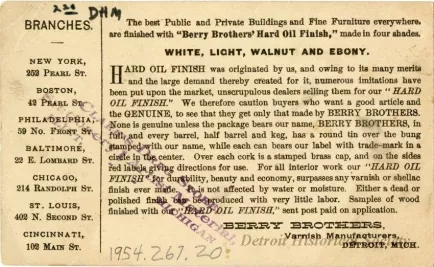 DHM
BRANCHES.
NEW YORK,
252 PEARL ST.
BOSTON,
42 PEARL ST.
PHILADELPHIA,
59 NO. FRONT ST.
BALTIMORE,
22 E. LOMBARD ST.
CHICAGO,
214 RANDOLPH ST.
ST. LOUIS,
402 N. SECOND ST.
CINCINNATI,
102 MAIN ST.
The best Public and Private Buildings and Fine Furniture everywhere,
are finished with "Berry Brothers' Hard Oil Finish," made in four shades.
WHITE, LIGHT, WALNUT AND EBONY.
HARD OIL FINISH was originated by us, and owing to its many merits
and the large demand thereby created for it, numerous imitations have
been put upon the market, unscrupulous dealers selling them for our "HARD
OIL FINISH." We therefore caution buyers who want a good article and
the GENUINE, to see that they get only that made by BERRY BROTHERS.
None is genuine unless the package bears our name, BERRY BROTHERS, in
full, and every barrel, half barrel and keg, has a round tin over the bung
stamped with our name, while each can bears our label with trade-mark in a
circle in the center. Over each cork is a stamped brass cap, and on the sides
red labels giving directions for use. For all interior work our "HARD OIL
FINISH," for durability, beauty and economy, surpasses any varnish or shellac
finish ever made, and is not affected by water or moisture. Either a dead or
polished finish can be produced with very little labor. Samples of wood
finished with our "HARD OIL FINISH," sent post paid on application.
BERRY BROTHERS,
Varnish Manufacturers,
DETROIT, MICH.
1954.267.20
Detroit Historical